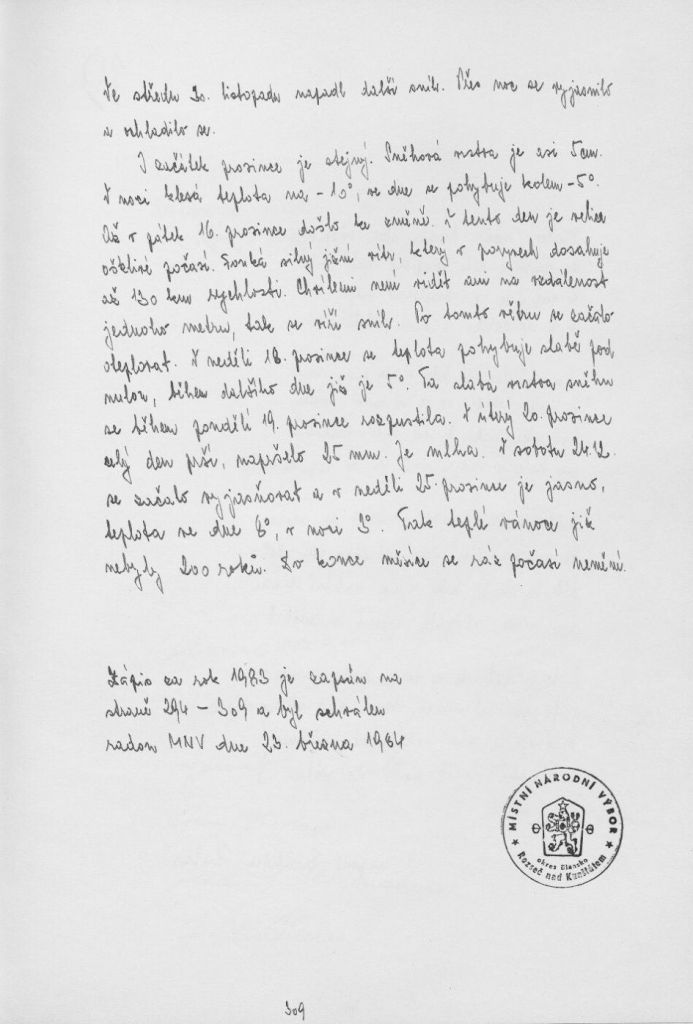 Ve středu 30. listopadu napadl další sníh. Přes noc se vyjasnilo
a ochladilo se.
I začátek prosince je stejný. Sněhová vrstva je asi 5cm.
V noci klesá teplota na -10°, ve dne se pohybuje kolem -5°.
Až v pátek 16. prosince došlo ke změně. V tento den je velice
ošklivé počasí. Fouká silný jižní vítr, který v poryvech dosahuje
až 130 km rychlosti. Chvílemi není vidět ani na vzdálenost
jednoho metru, tak se víří sníh. Po tomto větru se začalo
oteplovat. V neděli 18. prosince se teplota pohybuje slabě pod
nulou, během dalšího dne již je 5°. Ta slabá vrstva sněhu
se během pondělí 19. prosince rozpustila. V úterý 20. prosince
celý den prší, napršelo 25 mm. Je mlha. V sobotu 24.12.
se začalo vyjasňovat a v neděli 25. prosince je jasno,
teplota ve dne 8°, v noci 3°. Tak teplé vánoce již
nebyly 200 roků. Do konce měsíce se ráz počasí nemění.
Zápis za rok 1983 je zapsán na
straně 294 - 309 a byl schválen
radou MNV dne 23. března 1984
★ MÍSTNÍ NÁRODNÍ VÝBOR ★
okres Blansko
Rozseč nad Kunštátem
309